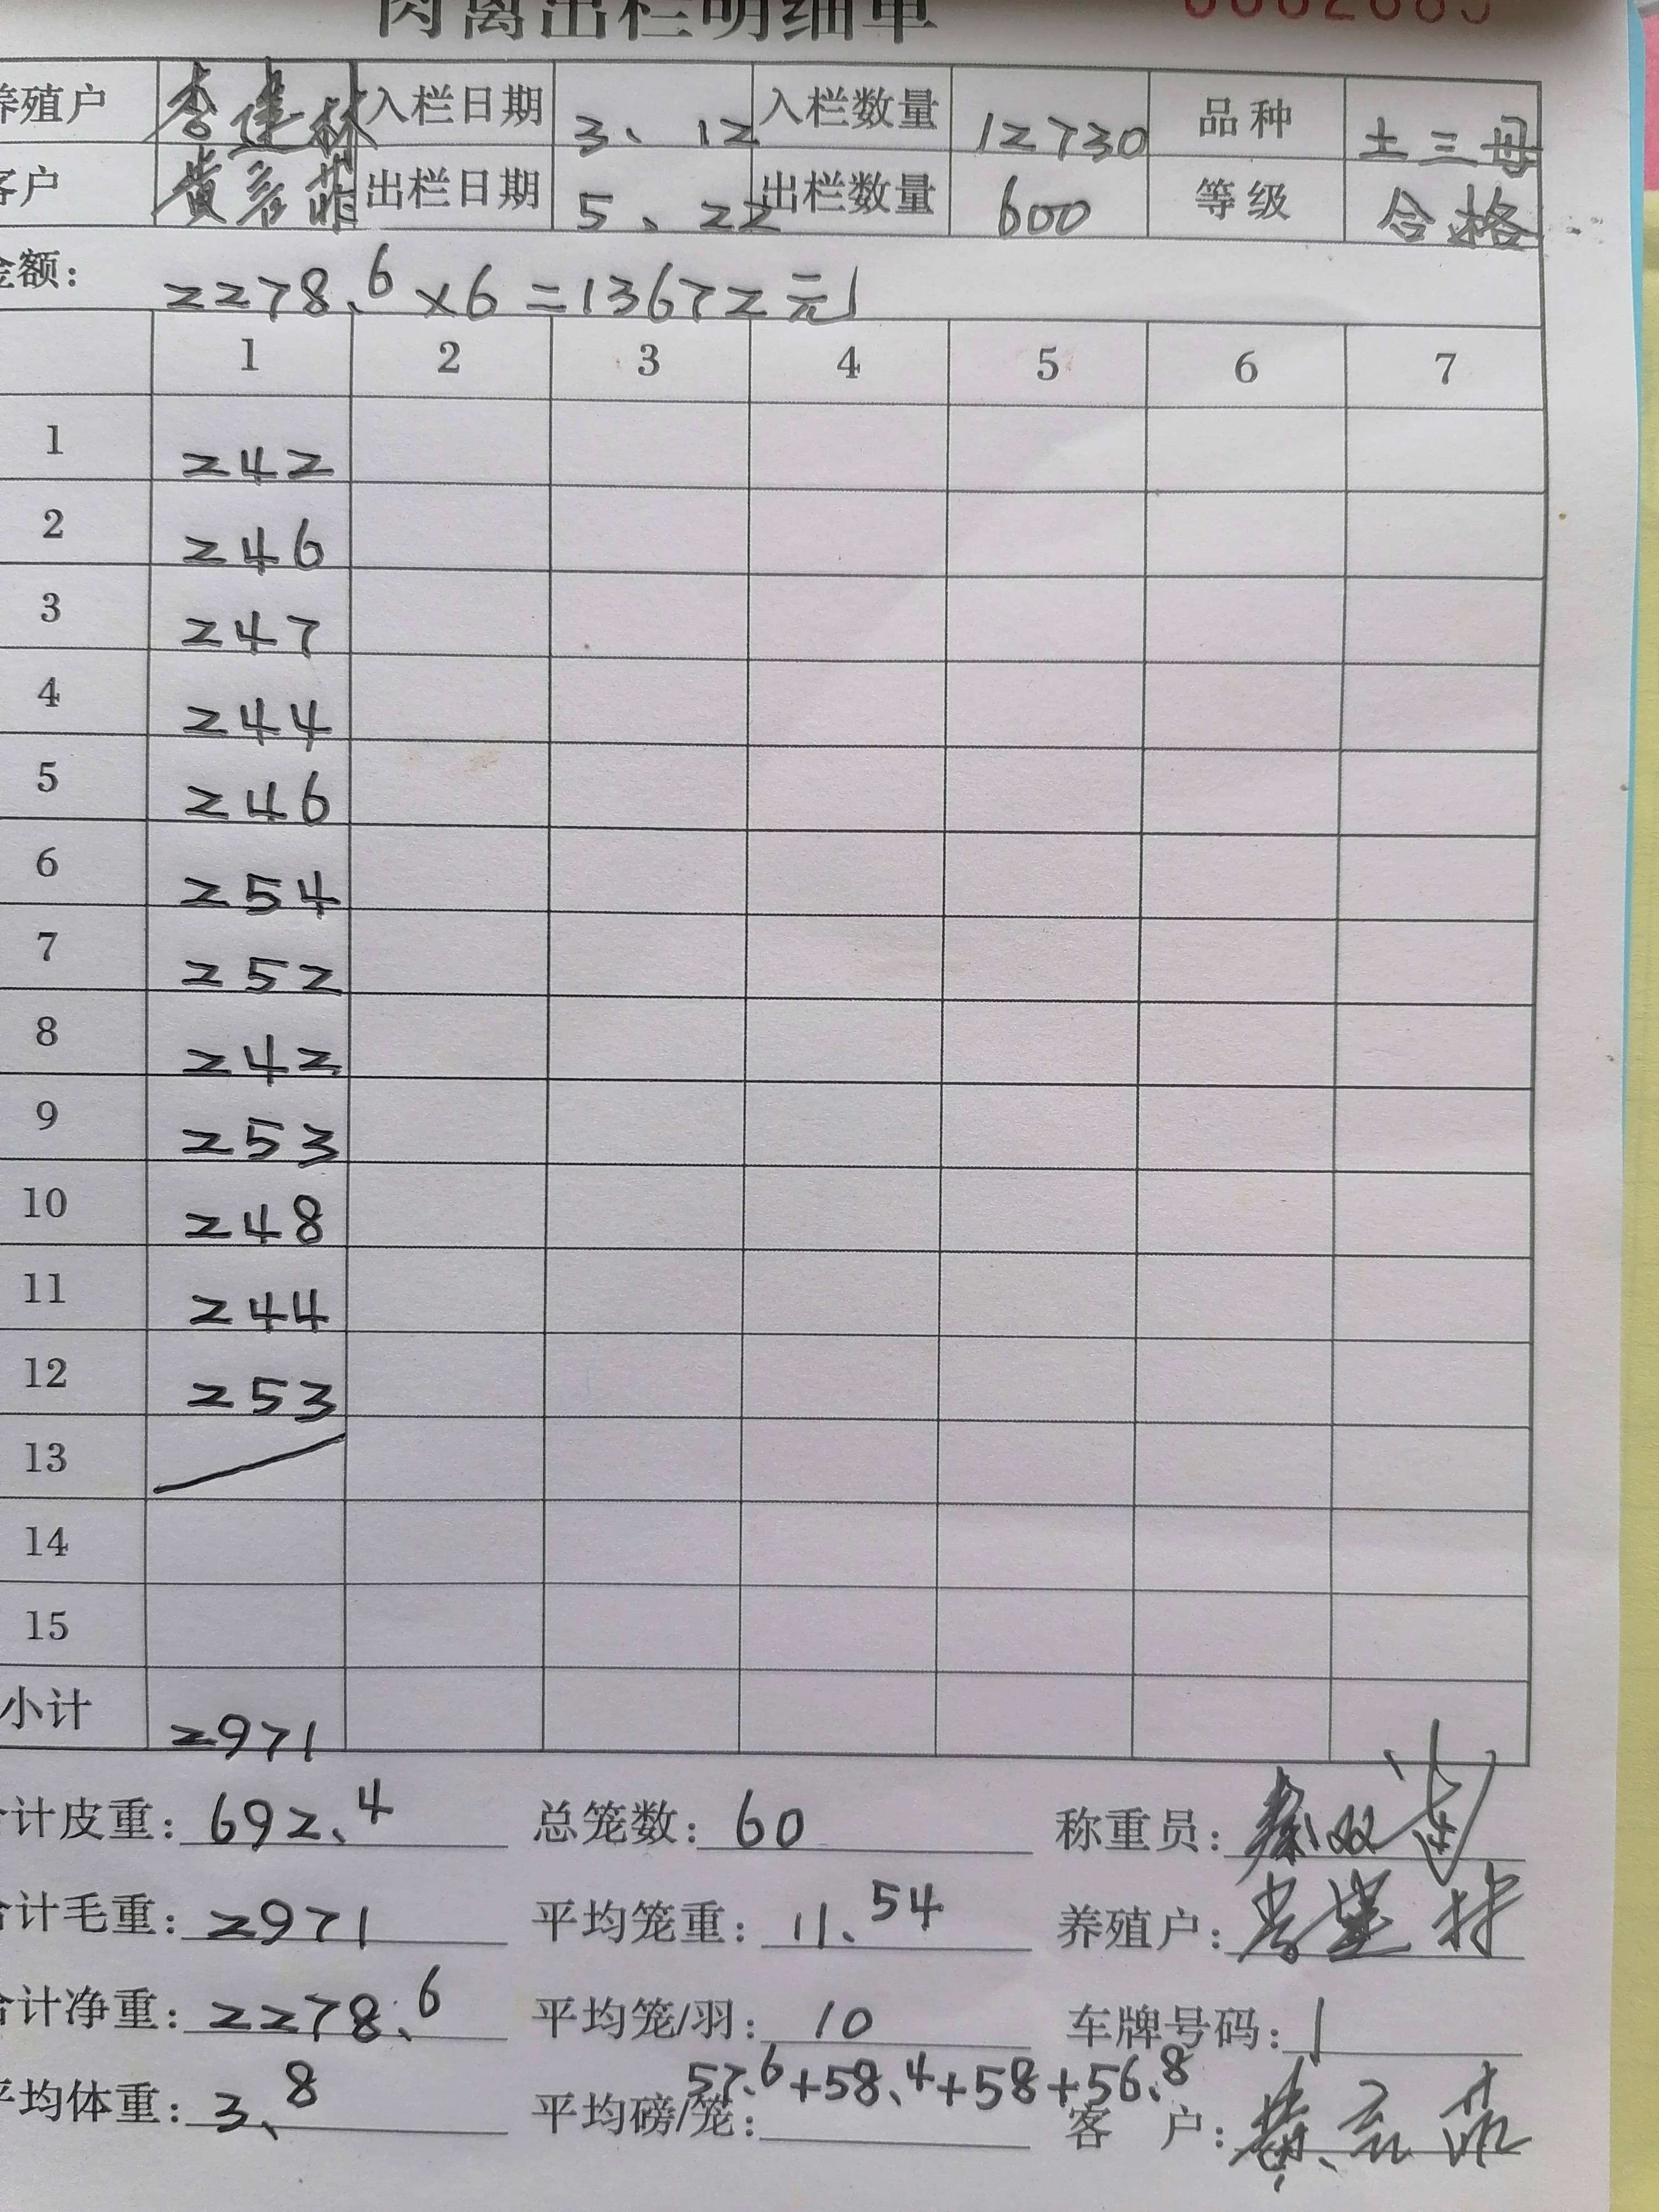 肉禽出栏明细单 0002685
养殖户 李建林 入栏日期 3、12 入栏数量 12730 品种 土三母
客户 黄 出栏日期 5、22 出栏数量 600 等级 合格
金额: 2278.6×6=13672元
1 2 3 4 5 6 7
1 242
2 246
3 247
4 244
5 246
6 254
7 252
8 242
9 253
10 248
11 244
12 253
13
14
15
小计 2971
合计皮重: 692.4 总笼数: 60 称重员: 秦双
合计毛重: 2971 平均笼重: 11.54 养殖户: 李建林
合计净重: 2278.6 平均笼/羽: 10 车牌号码: 1
57.6+58.4+58+56.8
平均体重: 3.8 平均磅/笼: 客 户: 黄